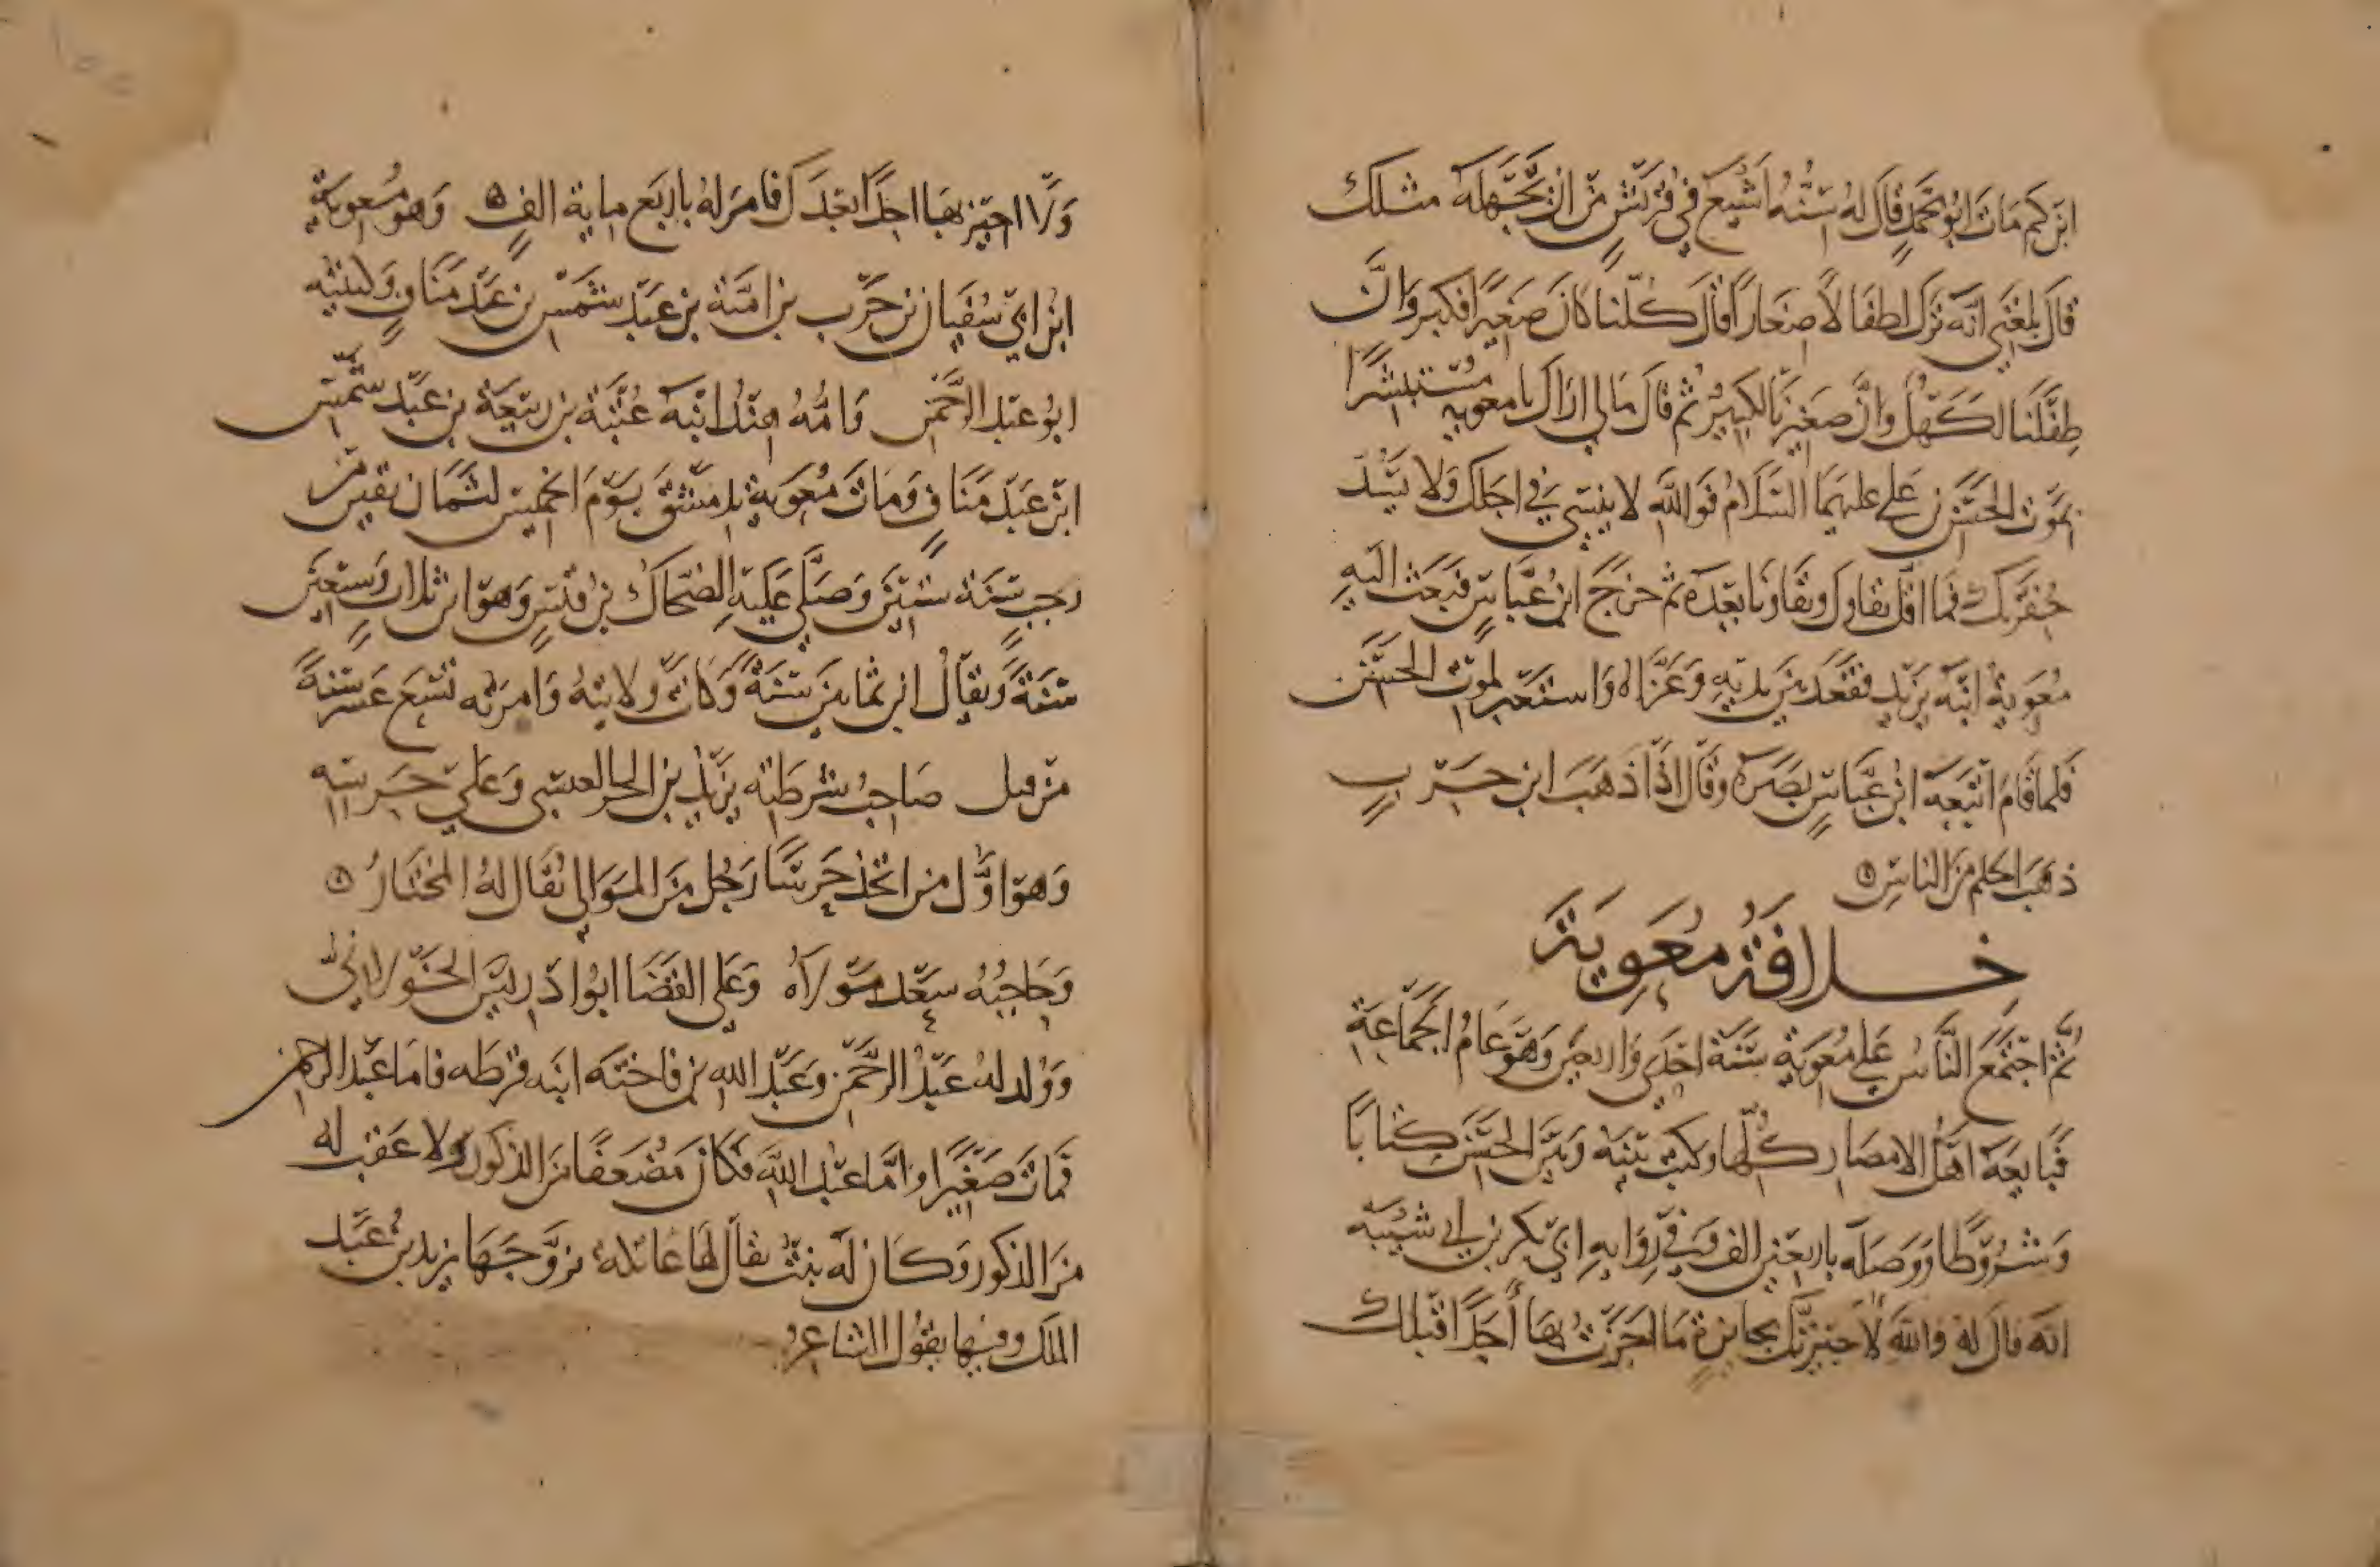 ابن كم مات ابو محمد قال له سنه اشيع في قريش من ان يجهله مثلك
قال بلغني انه ترك اطفالا صغارا قال كلنا كان صغيرا فكبر وان
طفلنا لكهل وان صغيرنا لكبير ثم قال مالي اراك يا معويه مستبشرا
بموت الحسن بن علي عليهما السلام فوالله لا ينسي في اجلك ولا يسد
حفرتك فما اقل بقاك وبقاونا بعده ثم خرج ابن عباس فبعث اليه
معوية ابنه يزيد فقعد بين يديه وعزاه واستعبر لموت الحسن
فلما قام اتبعه ابن عباس بصره وقال اذا ذهب ابن حرب
ذهب الحلم من الناس
خلافة معوية
ثم اجتمع الناس علي معوية سنة احدي واربعين وهو عام الجماعة
فبايعه اهل الامصار كلها وكتب بينه وبين الحسن كتابا
وشروطا ووصله باربعين الف وفي رواية ابي بكر بن ابي شيبه
انه قال له والله لاجيزنك بجايزة ما اجزت بها أحدا قبلك
ولا اجيز بها احدا بعدك فامر له باربع ماية الف وهو معوية
ابن ابي سفيان بن حرب بن امية بن عبد شمس بن عبد مناف وكنيته
ابو عبد الرحمن وامه هند ابنه عتبة بن ربيعة بن عبد شمس
ابن عبد مناف ومات معوية بدمشق يوم الخميس لثمان بقين من
رجب سنة ستين وصلي عليه الضحاك بن قيس وهو ابن ثلاث وسبعين
سنة ويقال ابن ثمانين سنة وكانت ولايته وامرته تسع عشر سنة
من قبل صاحب شرطته يزيد بن الحر العبسي وعلي حرسه
وهو اول من اتخذ حرسا رجل من الموالي يقال له المختار
وحاجبه سعد مولاه وعلي القضا ابو ادريس الخولاني
وولد له عبد الرحمن وعبد الله من فاخته ابنه قرظه فاما عبد الرحمن
فمات صغيرا واما عبد الله فكان مضعفا من الذكور ولا عقب له
من الذكور وكان له بنت يقال لها عاتكه تزوجها يزيد بن عبد
الملك وفيها يقول الشاعر